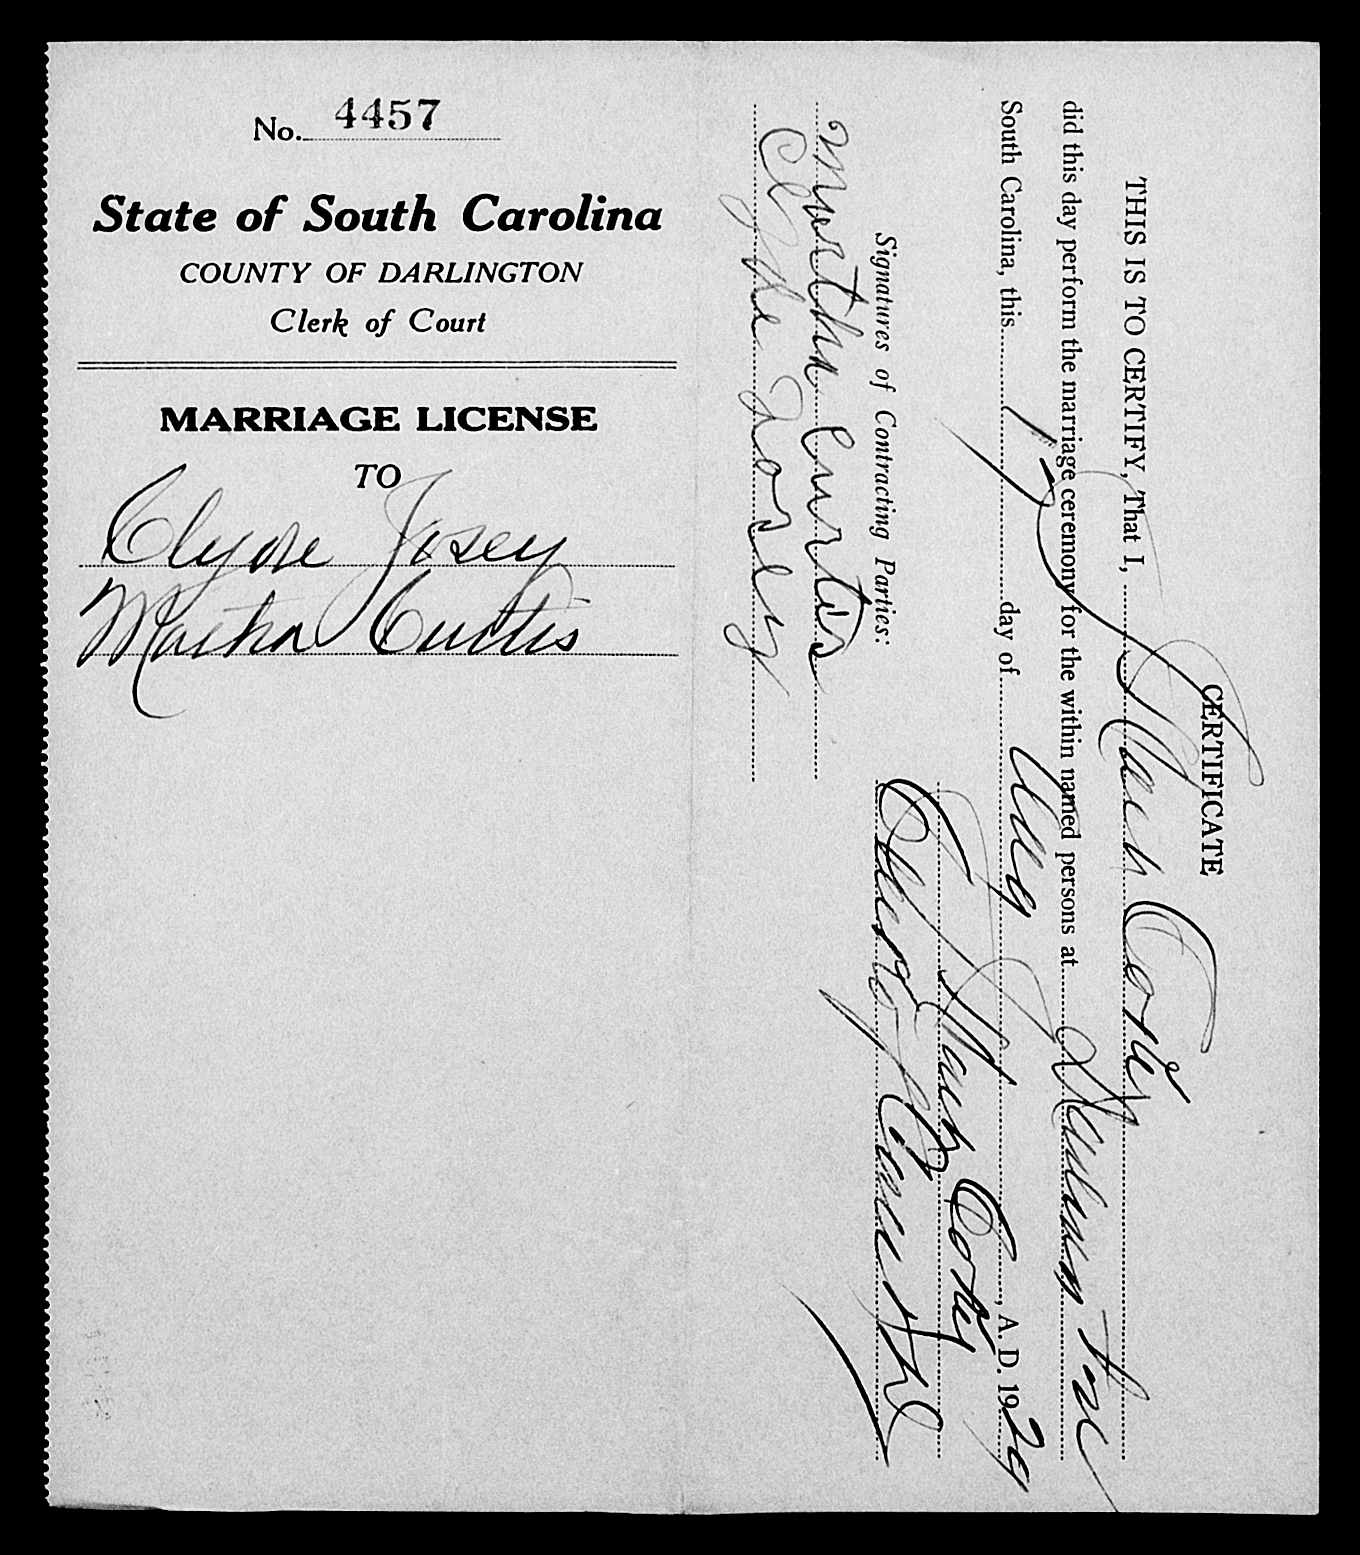 No. 4457
State of South Carolina
COUNTY OF DARLINGTON
Clerk of Court
MARRIAGE LICENSE
TO
Clyde Josey
Martha Curtis
CERTIFICATE
THIS IS TO CERTIFY, That I,
did this day perform the marriage ceremony for the within named persons at
South Carolina, this 17 day of Aug, A. D. 1929
Signatures of Contracting Parties:
Martha Curtis
Clyde Josey